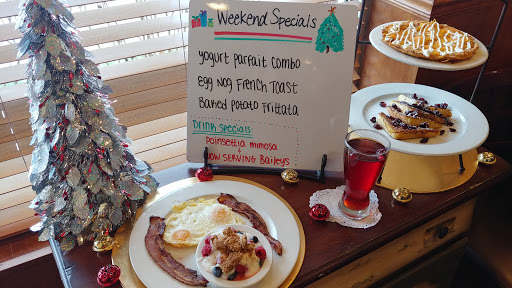 Weekend Specials
yogurt parfait combo
egg Nog French Toast
Baked potato Frittata
Drink specials:
Poinsettia mimosa
Now SERVING Baileys